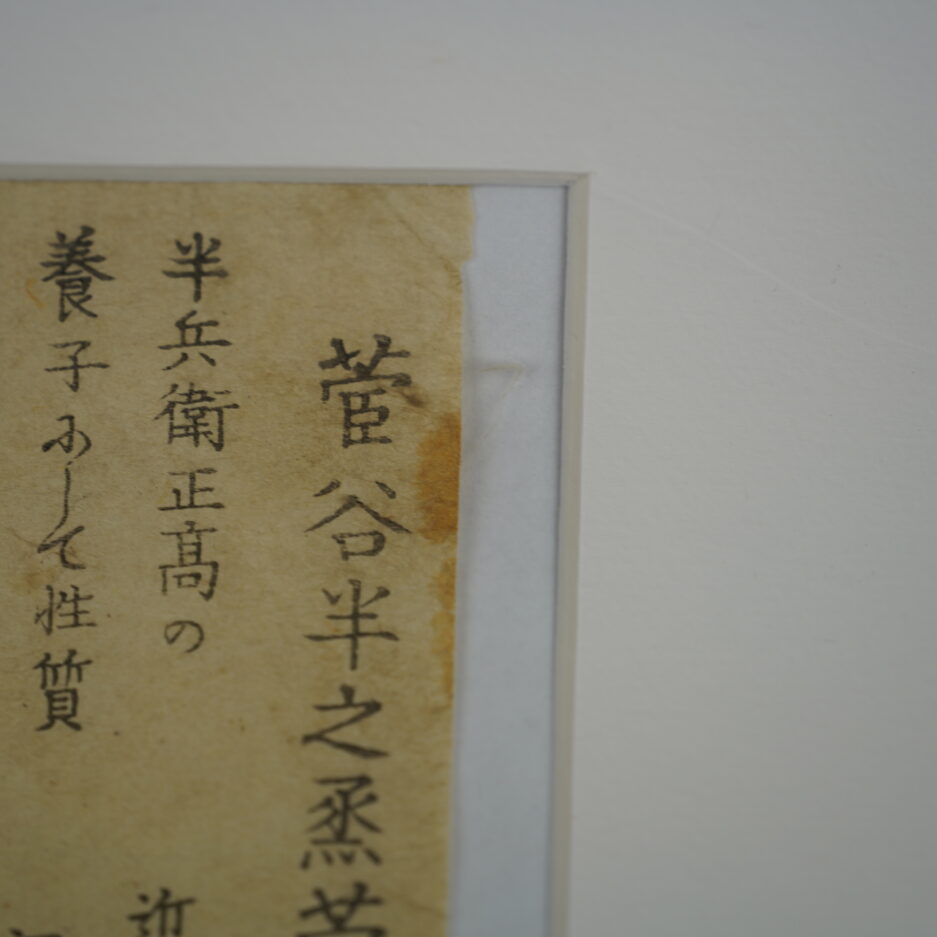 菅谷半之烝
半兵衛正髙の
近
養子ふして性質